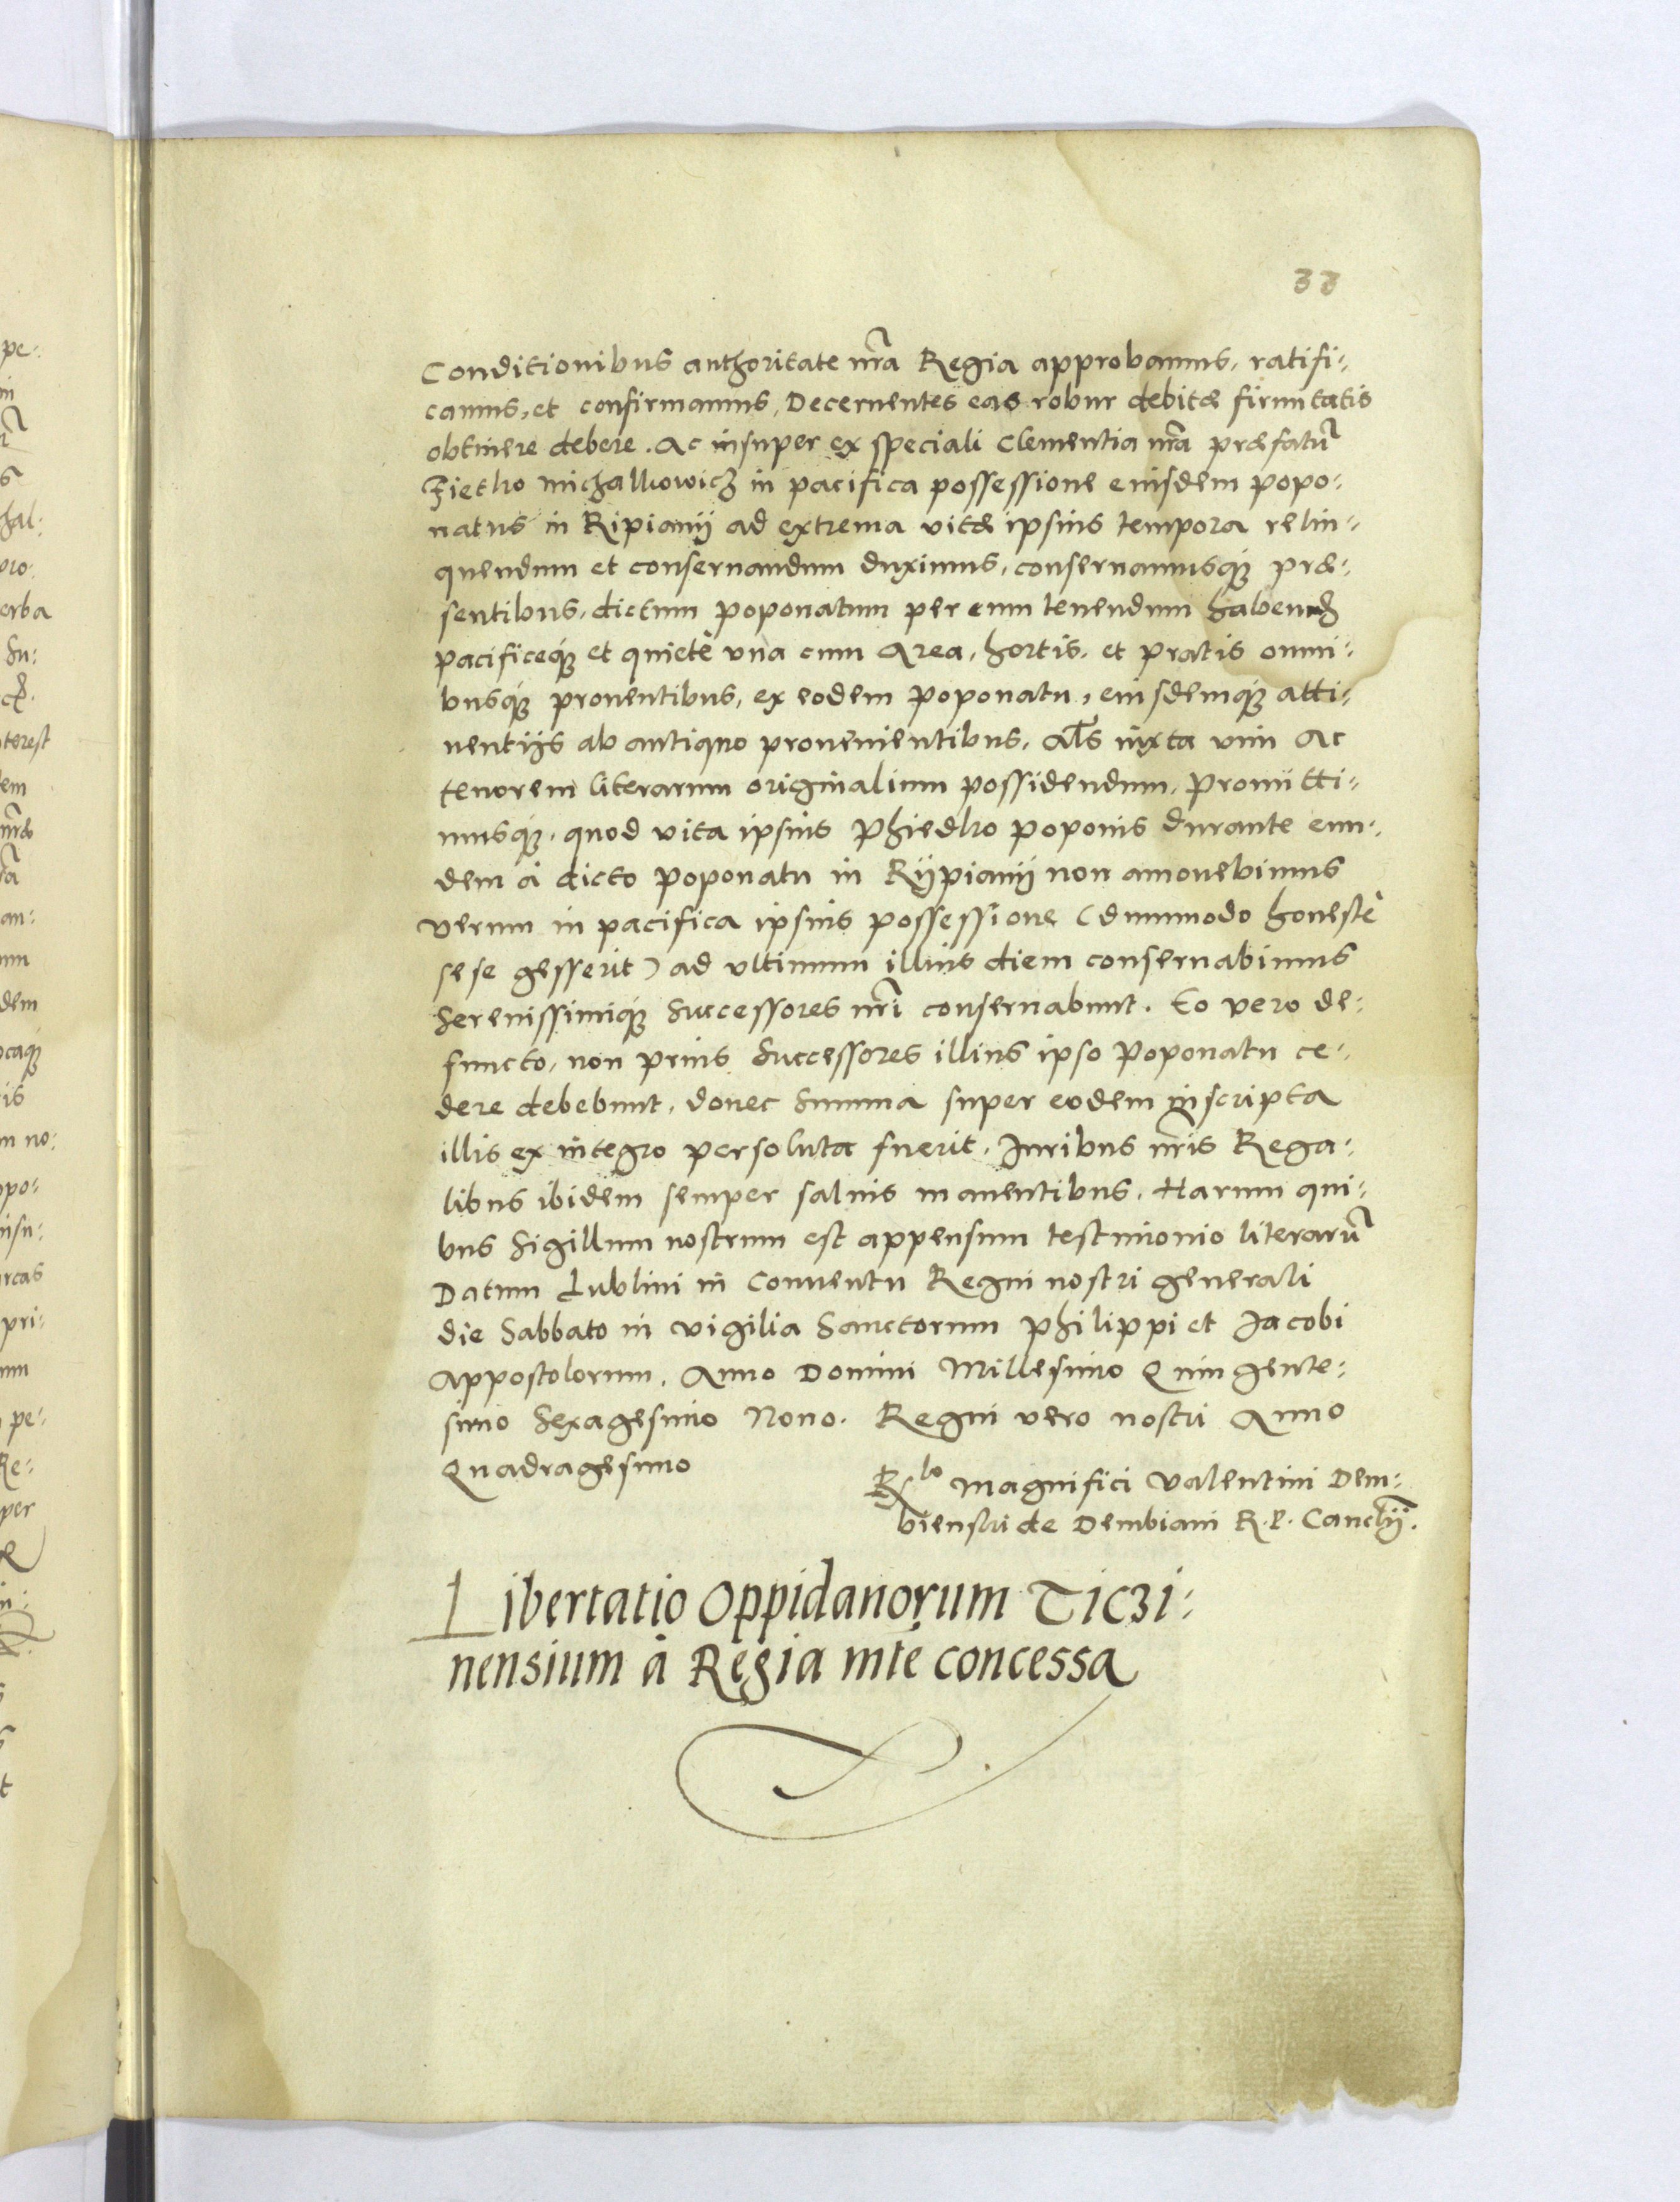 33
Conditionibus authoritate nr̃a Regia approbamus, ratifi:
camus, et confirmamus, Decernentes eas robur debitæ firmitatis
obtinere debere. Ac insuper ex speciali Clementia nr̃a præfatũ
Fietko Michalkowicz in pacifica possessione eiusdem popo:
natus in Ripianij ad extrema vitæ ipsius tempora relin:
quendum et conseruandum duximus, conseruamusq́ꝫ præ:
sentibus, dictum poponatum per eum tenendum habend
pacificeq́ꝫ et quietè vna cum Area, hortis, et pratis omni:
busq́ꝫ prouentibus, ex eodem poponatu, eiusdemq́ꝫ atti:
nentijs ab antiquo prouenientibus, al̃s iuxta vim Ac
tenorem literarum originalium possidendum, Promitti:
musq́ꝫ, quod vita ipsius Phiedko poponis durante eun:
dem à dicto poponatu in Rijpianij non amouebimus
verum in pacifica ipsius possessione (dummodo honestè
sese gesserit) ad vltimum illius diem conseruabimus
Serenissimiq́ꝫ Successores nr̃i conseruabunt. Eo vero de:
functo, non prius Successores illius ipso Poponatu ce:
dere debebunt, donec Summa super eodem inscripta
illis ex integro persoluta fuerit, Iuribus nr̃is Rega:
libus ibidem semper saluis manentibus. Harum qui:
bus Sigillum nostrum est appensum testimonio literarũ
Datum Lublini in Conuentu Regni nostri generali
die Sabbato in vigilia Sanctorum Philippi et Jacobi
Appostolorum. Anno Domini Millesimo Quingente:
simo Sexagesimo Nono. Regni vero nostri Anno
Quadragesimo
R<sup>lo</sup> Magnifici Valentini Dem:
bienski de Dembiani R. P. Canclr̃ij.
Libertatio Oppidanorum Ticzi:
nensium à Regia mte concessa